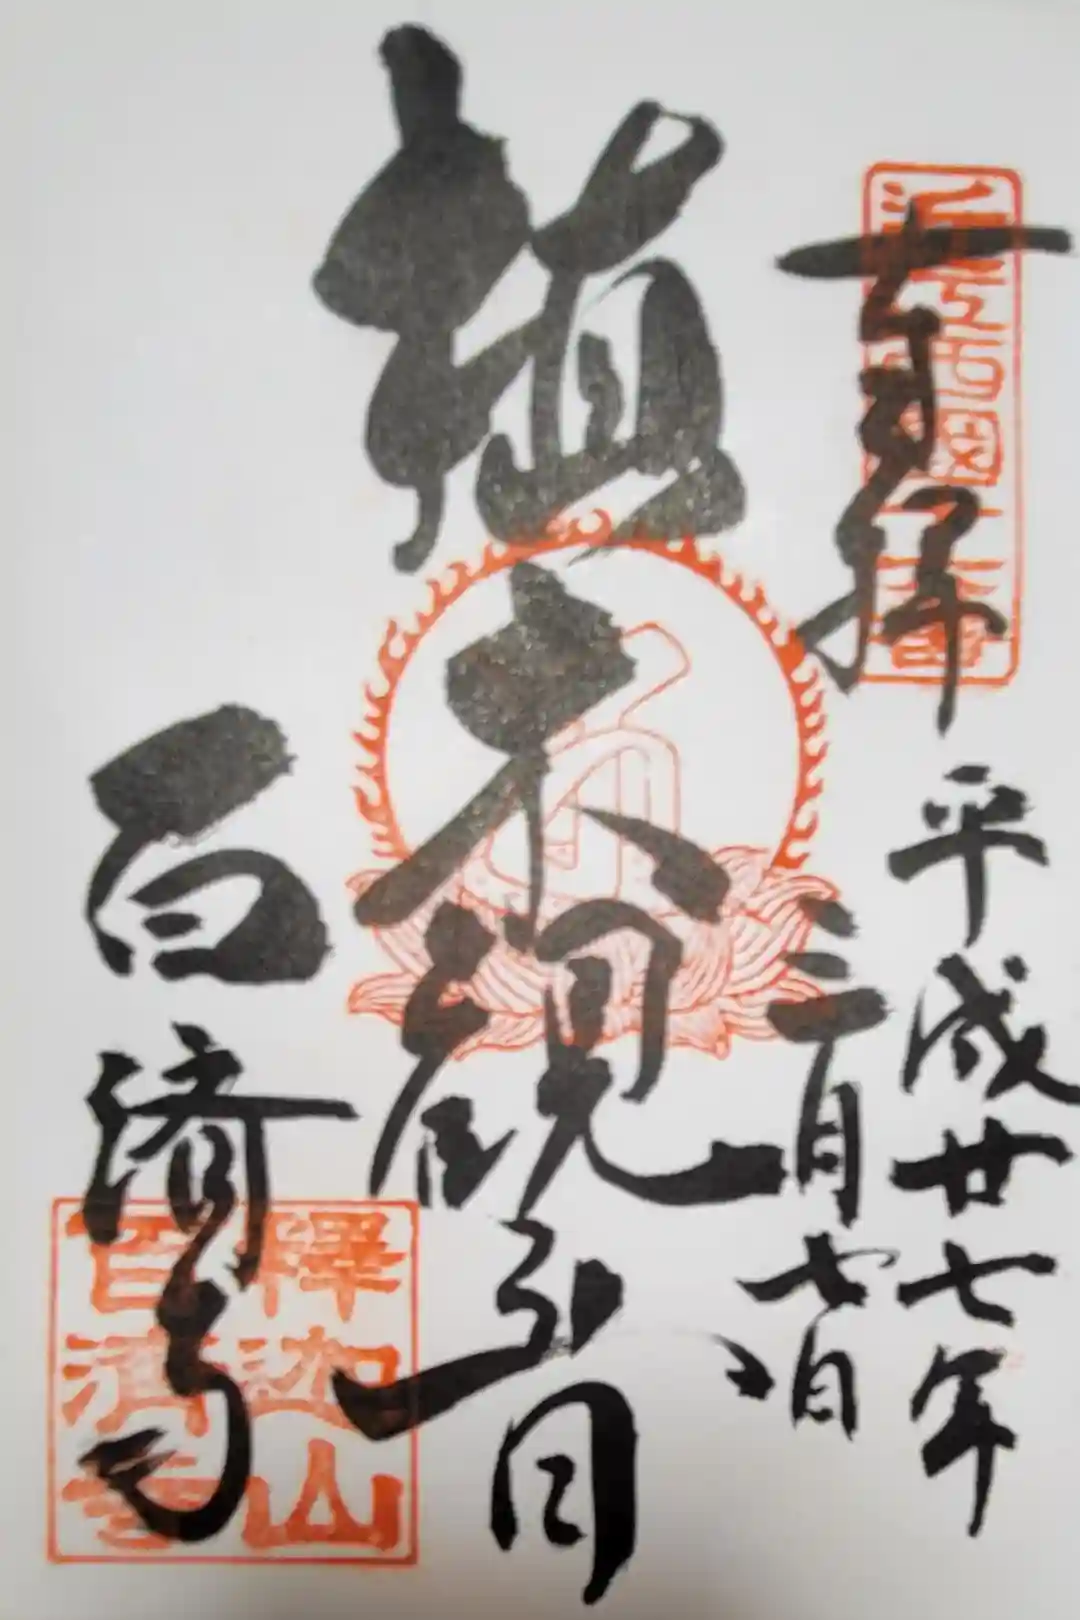 奉拝
近江西国
平成廿七年
三月七日
植木観音
百済寺
釋迦山
百濟寺